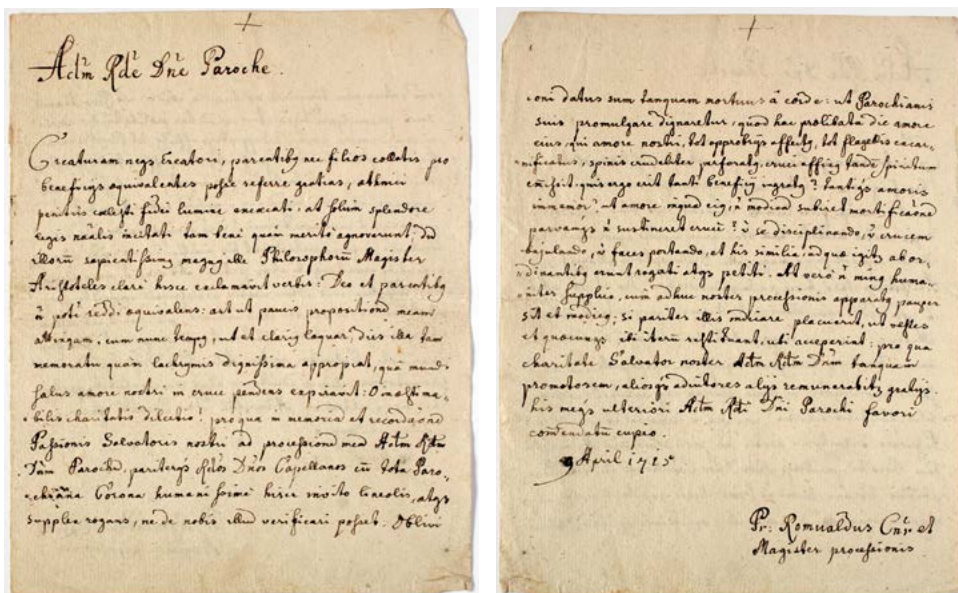 Actm̃ Rde Dñe Paroche.
Creaturam neqs Creatori, parentibq nec filios collatis pro
beneficijs aequivalentes posse referre gratias, athnici
penitus coelesti fidei lumine excaecati, at solum splendore
legis nãalis incitati tam beni quam meriti agnoverunt; Dũ
illorũ sapientissimq magnq ille Philosophorũ Magister
Aristoteles clari hisce exclamavit verbis: Deo et parentibq
ñ poti reddi aequivalens: ast ut paucis propositionẽ meam
attingam, cum nunc tempq, ut et clariq loquar, dies illa tam
memoratu quàm lachrymis dignissima appropiat, quâ mundi
salus amore nostri in cruce pẽdens expiravit: O inaestima-
bilis charitatis dilectio! pro qua in memoriã et recordãonẽ
Passionis Salvatoris nostri ad processionẽ meã Actm̃ Rdm̃
Dũm Parochũ, pariterqs Rdos Dños Capellanos cũ tota Paro-
chiana Corona humanissime hisce invito lineolis, atqs
supplex rogans, ne de nobis illud verificari posset: Oblivi
oni datus sum tanquam mortuus à corde: ut Parochianis
suis promulgare dignaretur, quod hac prolibata die amore
eius, qui amore nostri, tot opprobrijs affectq, tot flagellis excar-
nificatus, spinis crudeliter perforatq, cruci affixq tandẽ spiritum
emisit: quis ergo erit tanti beneficij ingratq? tantiqs amoris
immemor? at amore inquã eiq, ñ modicã subiret mortificãonẽ
parvamqs ñ sustineret crucẽ? ṽ se disciplinando, ṽ crucem
bajulando, ṽ faces portando, et his similia, ad quae igitq ab or-
dinantibq erunt rogati atqs petiti. At verò ñ minq huma-
niter supplico, cum adhuc noster processionis apparatq pauper
sit et modicq; si pariter illis indicare placuerit, ut vestes
et quaecunqs ibi iterũ restituant, uti acceperint: pro qua
charitate Salvator noster Actm̃ Rdm̃ Dũm tanquam
promotorem, aliosqs adiutores alijs remunerabitq gratijs.
his meqs ulteriori Actm̃ Rdi Dñi Parochi favori
com̃endatũ cupio.
9 April 1715
Pr: Romualdus Cnr̃ et
Magister processionis.